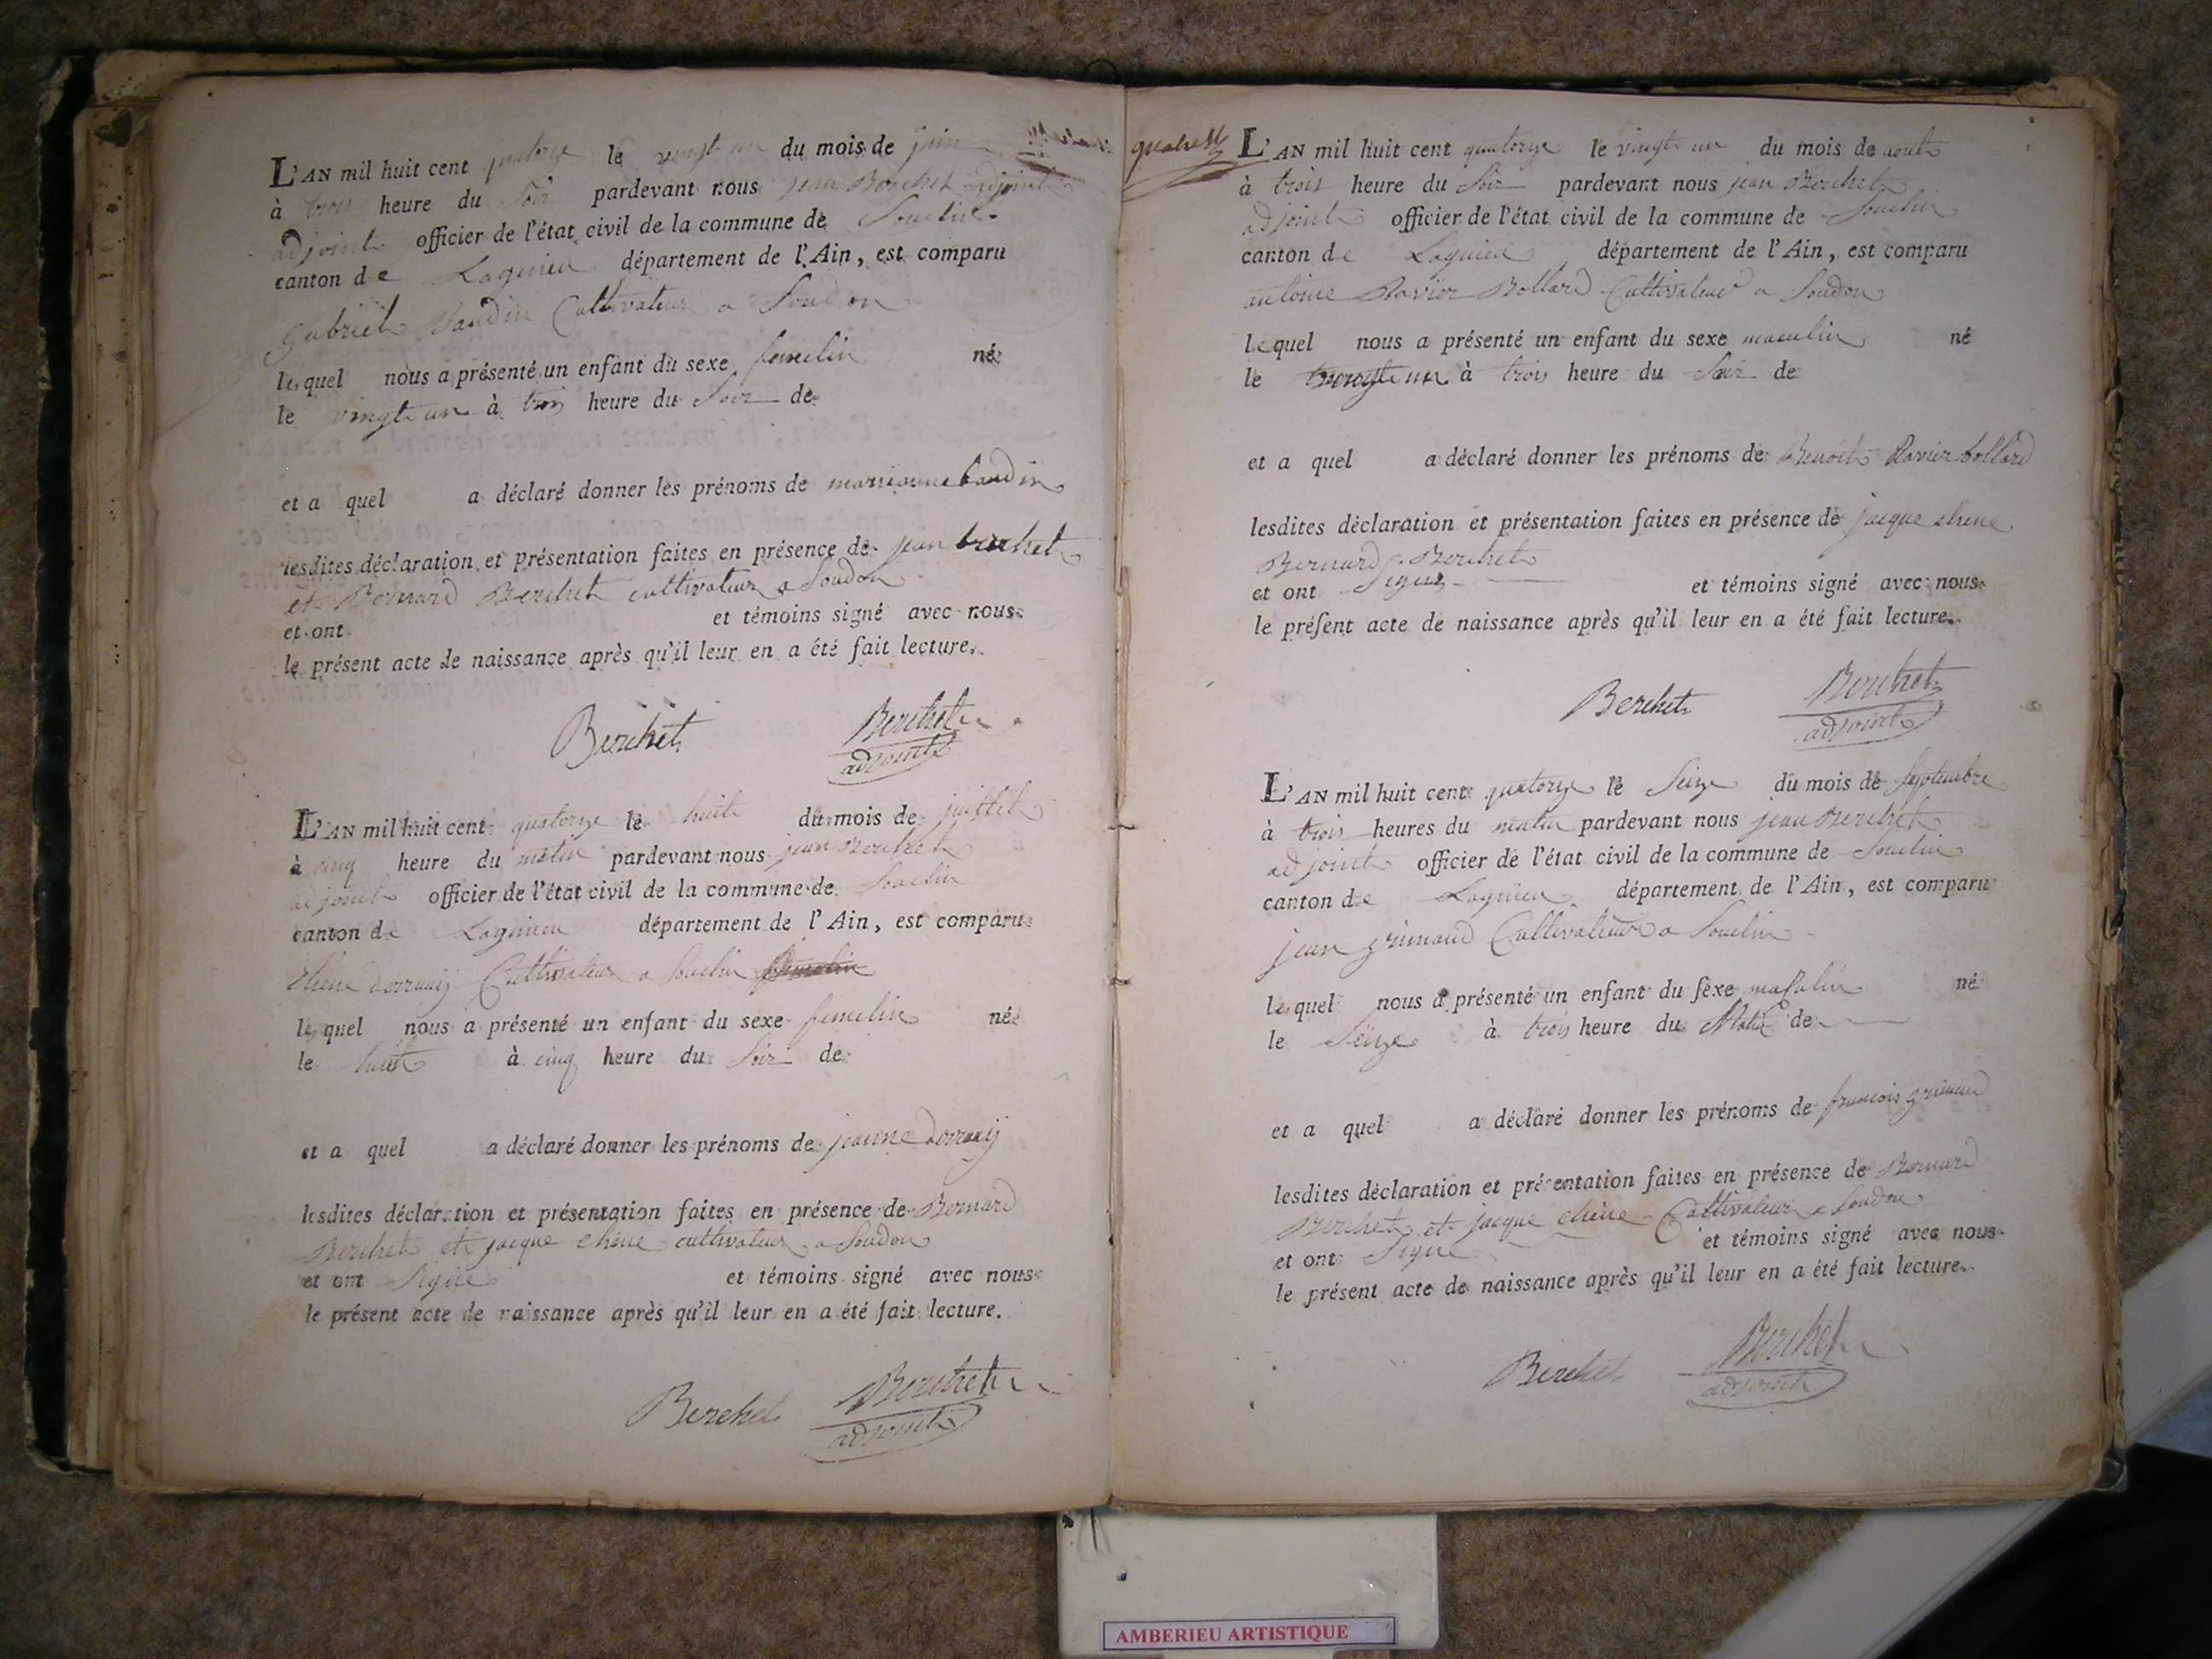 L'AN mil huit cent quatorze le vingt un du mois de juin
à trois heure du soir pardevant nous jean Berchet adjoint
adjoint officier de l'état civil de la commune de Souclin
canton de Lagnieu département de l'Ain, est comparu
gabriel Baudin Cultivateur a Soudon
lequel nous a présenté un enfant du sexe femelin né
le vingt un à trois heure du Soir de
et a quel a déclaré donner les prénoms de marieanne baudin
lesdites déclaration et présentation faites en présence de jean berchet
et Bernard Berchet cultivateur a Soudon
et ont et témoins signé avec nous
le présent acte de naissance après qu'il leur en a été fait lecture.
Berchet Berchet
adjoint
L'AN mil huit cent quatorze le huit du mois de juillet
à cinq heure du matin pardevant nous jean Berchet
adjoint officier de l'état civil de la commune de Souclin
canton de Lagnieu département de l'Ain, est comparu
Cultivateur a Souclin
lequel nous a présenté un enfant du sexe femelin né
le huit à cinq heure du Soir de
et a quel a déclaré donner les prénoms de jeanne
lesdites déclaration et présentation faites en présence de Bernard
Berchet et jacque chene cultivateur a Soudon
et ont Signé et témoins signé avec nous
le présent acte de naissance après qu'il leur en a été fait lecture.
Berchet Berchet
adjoint
L'AN mil huit cent quatorze le vingt un du mois de août
à trois heure du Soir pardevant nous jean Berchet
adjoint officier de l'état civil de la commune de Souclin
canton de Lagnieu département de l'Ain, est comparu
antoine Ravier Bollard Cultivateur a Soudon
lequel nous a présenté un enfant du sexe masculin né
le vingt un à trois heure du Soir de
et a quel a déclaré donner les prénoms de Benoit Ravier bollard
lesdites déclaration et présentation faites en présence de jacque chene
Bernard Berchet
et ont Signé et témoins signé avec nous
le préſent acte de naissance après qu'il leur en a été fait lecture.
Berchet Berchet
adjoint
L'AN mil huit cent quatorze le Seize du mois de Septembre
à trois heures du matin pardevant nous jean Berchet
adjoint officier de l'état civil de la commune de Souclin
canton de Lagnieu département de l'Ain, est comparu
jean grimaud Cultivateur a Souclin
lequel nous a présenté un enfant du ſexe né
le Seize à trois heure du Matin de
et a quel a déclaré donner les prénoms de francois grimaud
lesdites déclaration et présentation faites en présence de Bernard
Berchet et jacque chene Cultivateur a Soudon
et ont Signé et témoins signé avec nous
le présent acte de naissance après qu'il leur en a été fait lecture.
Berchet Berchet
adjoint
AMBERIEU ARTISTIQUE